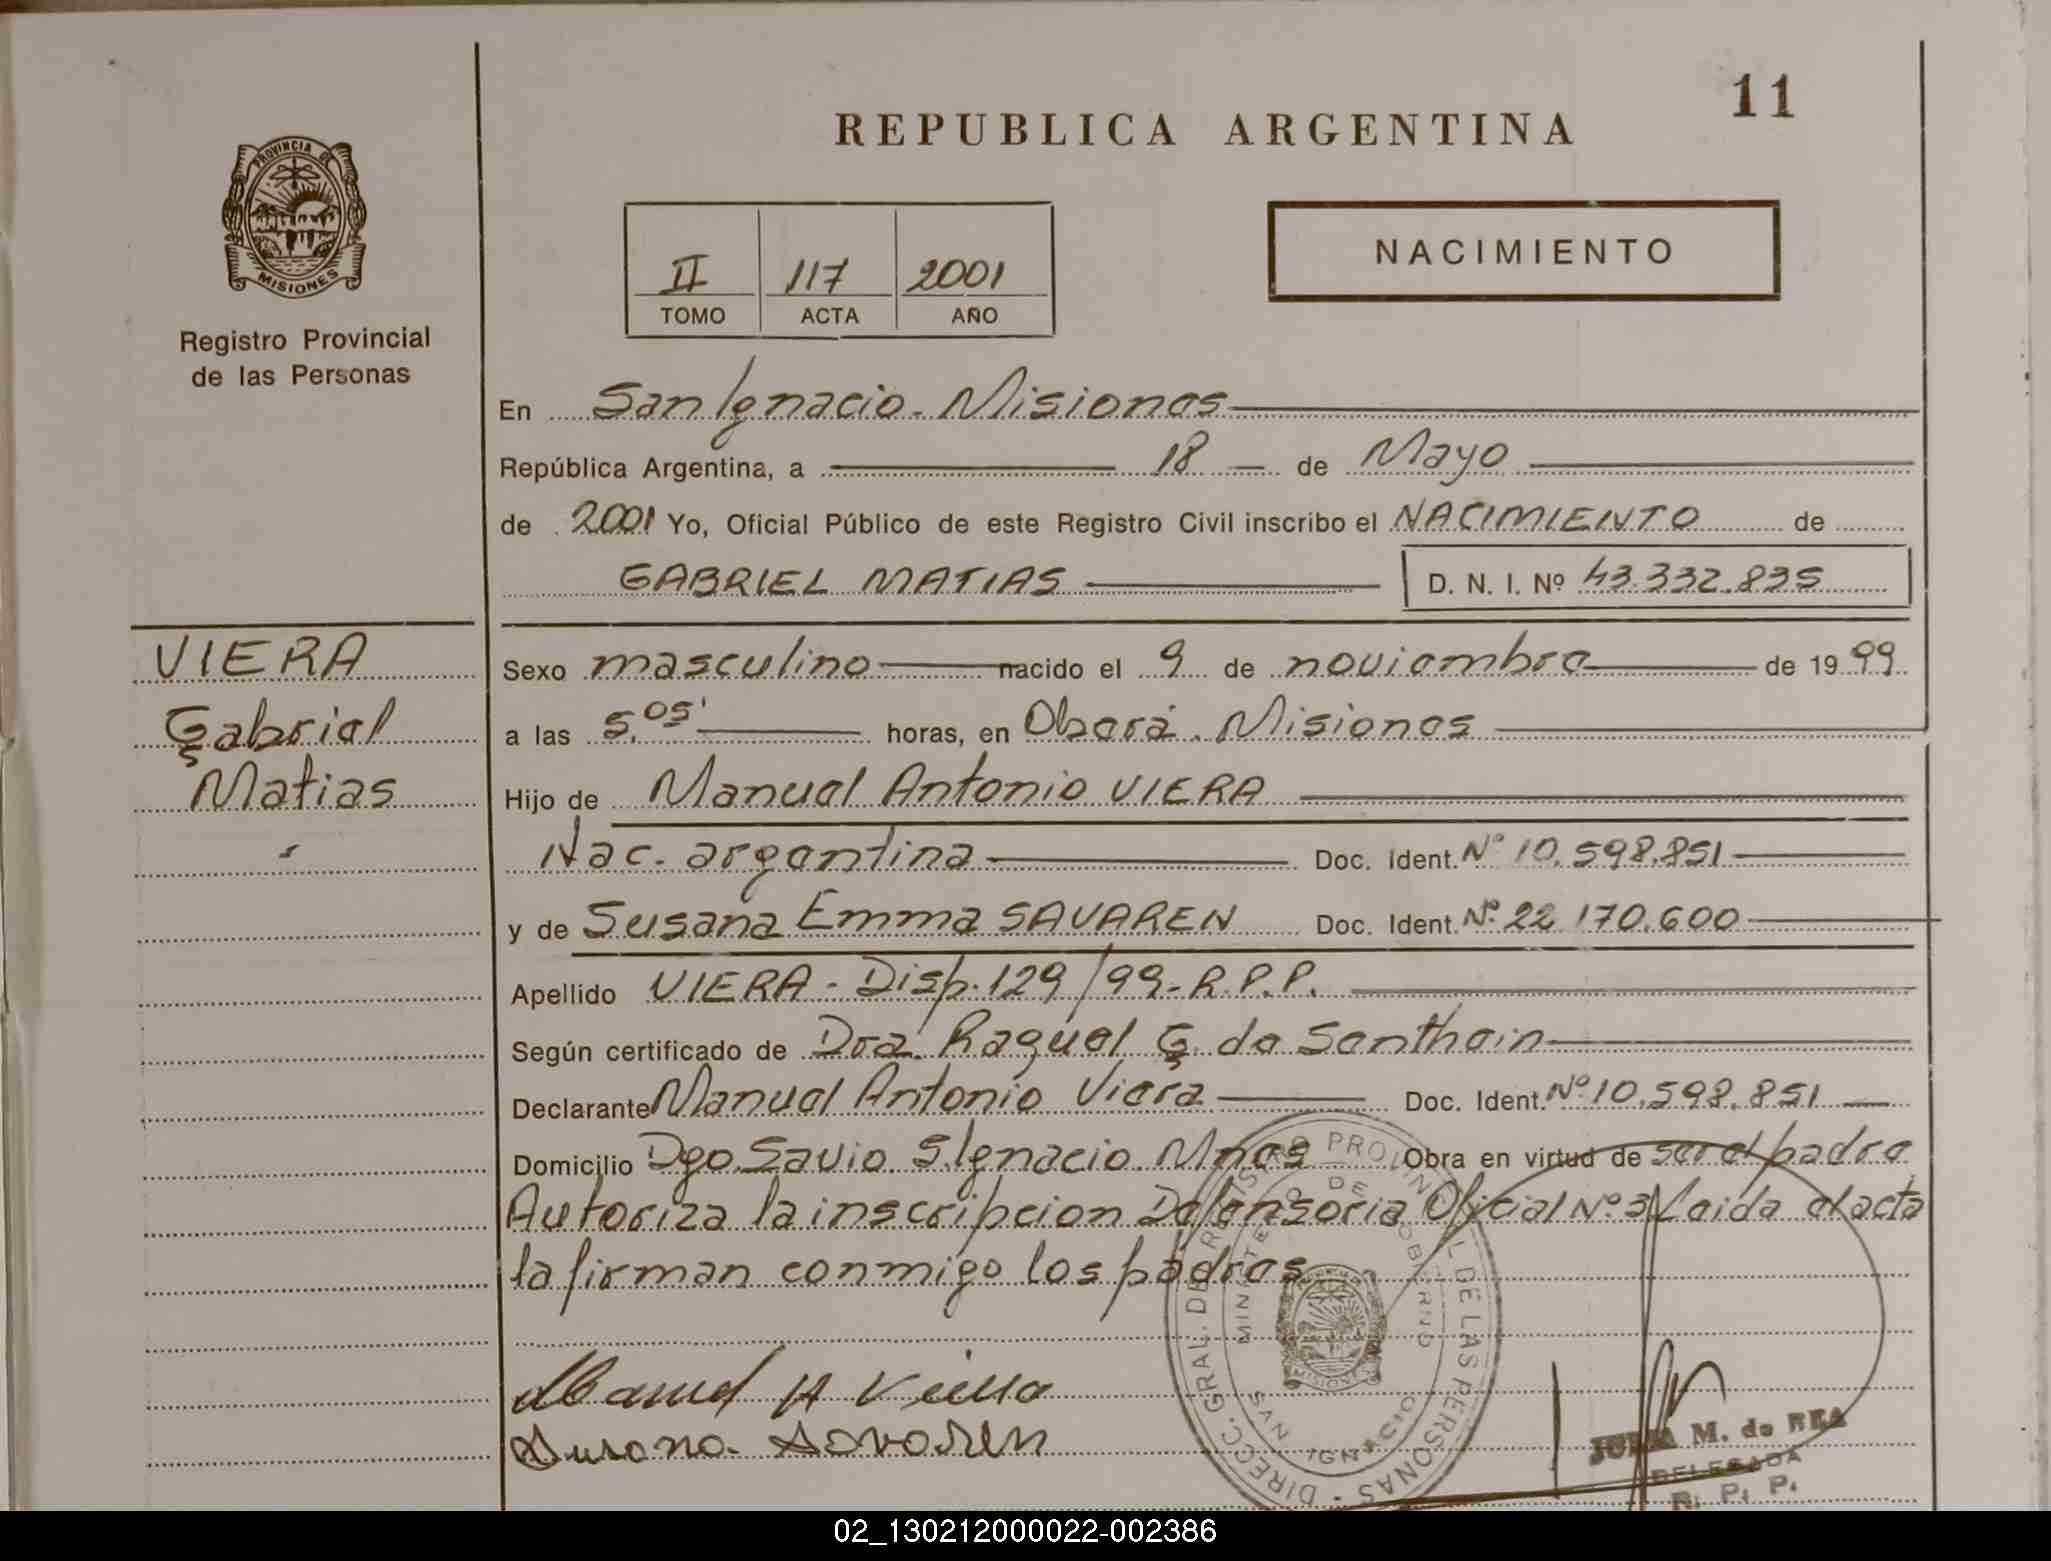 11
REPUBLICA ARGENTINA
PROVINCIA DE
MISIONES
Registro Provincial
de las Personas
NACIMIENTO
II 117 2001
TOMO ACTA AÑO
En San Ignacio. Misiones
República Argentina, a 18 de Mayo
de 2001 Yo, Oficial Público de este Registro Civil inscribo el NACIMIENTO de
GABRIEL MATIAS D. N. I. Nº 43.332.835
VIERA
Gabriel
Matias
Sexo masculino nacido el 9 de noviembre de 1999
a las 5,05' horas, en Oberá. Misiones
Hijo de Manuel Antonio VIERA
Nac. argentina Doc. Ident. Nº 10.598.851
y de Susana Emma SAVAREN Doc. Ident. Nº 22.170.600
Apellido VIERA - Disp. 129/99-R.P.P.
Según certificado de Dra. Raquel G. de Senthein
Declarante Manuel Antonio Viera Doc. Ident. Nº 10.598.851
Domicilio Dgo. Savio S. Ignacio. Mnes Obra en virtud de ser el padre
Autoriza la inscripcion Defensoria Oficial Nº 3 Leida el acta
la firman conmigo los padres
Manuel A Viera
Susana Savaren
DIRECC. GRAL. DE REGISTRO PROVINCIAL DE LAS PERSONAS -
MINISTERIO DE GOBIERNO
MISIONES
SAN IGNACIO
M. de REA
DELEGADA
R. P. P.
02_130212000022-002386